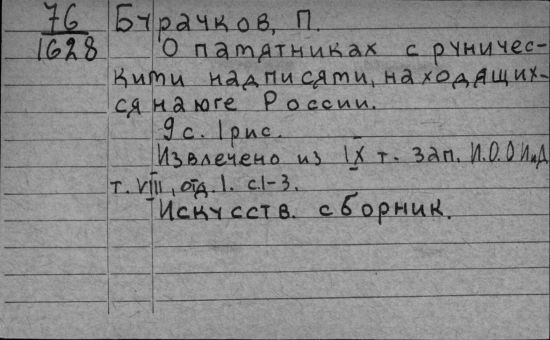 76 Бурачков, П.
1628 О памятниках с руничес-
кими надписями, находящих-
ся на юге России.
9 с. 1 рис.
Извлечено из IX т. Зап. И.О.О.ИиД
т. VIII, отд. 1. с. 1-3.
Искусств. сборник.